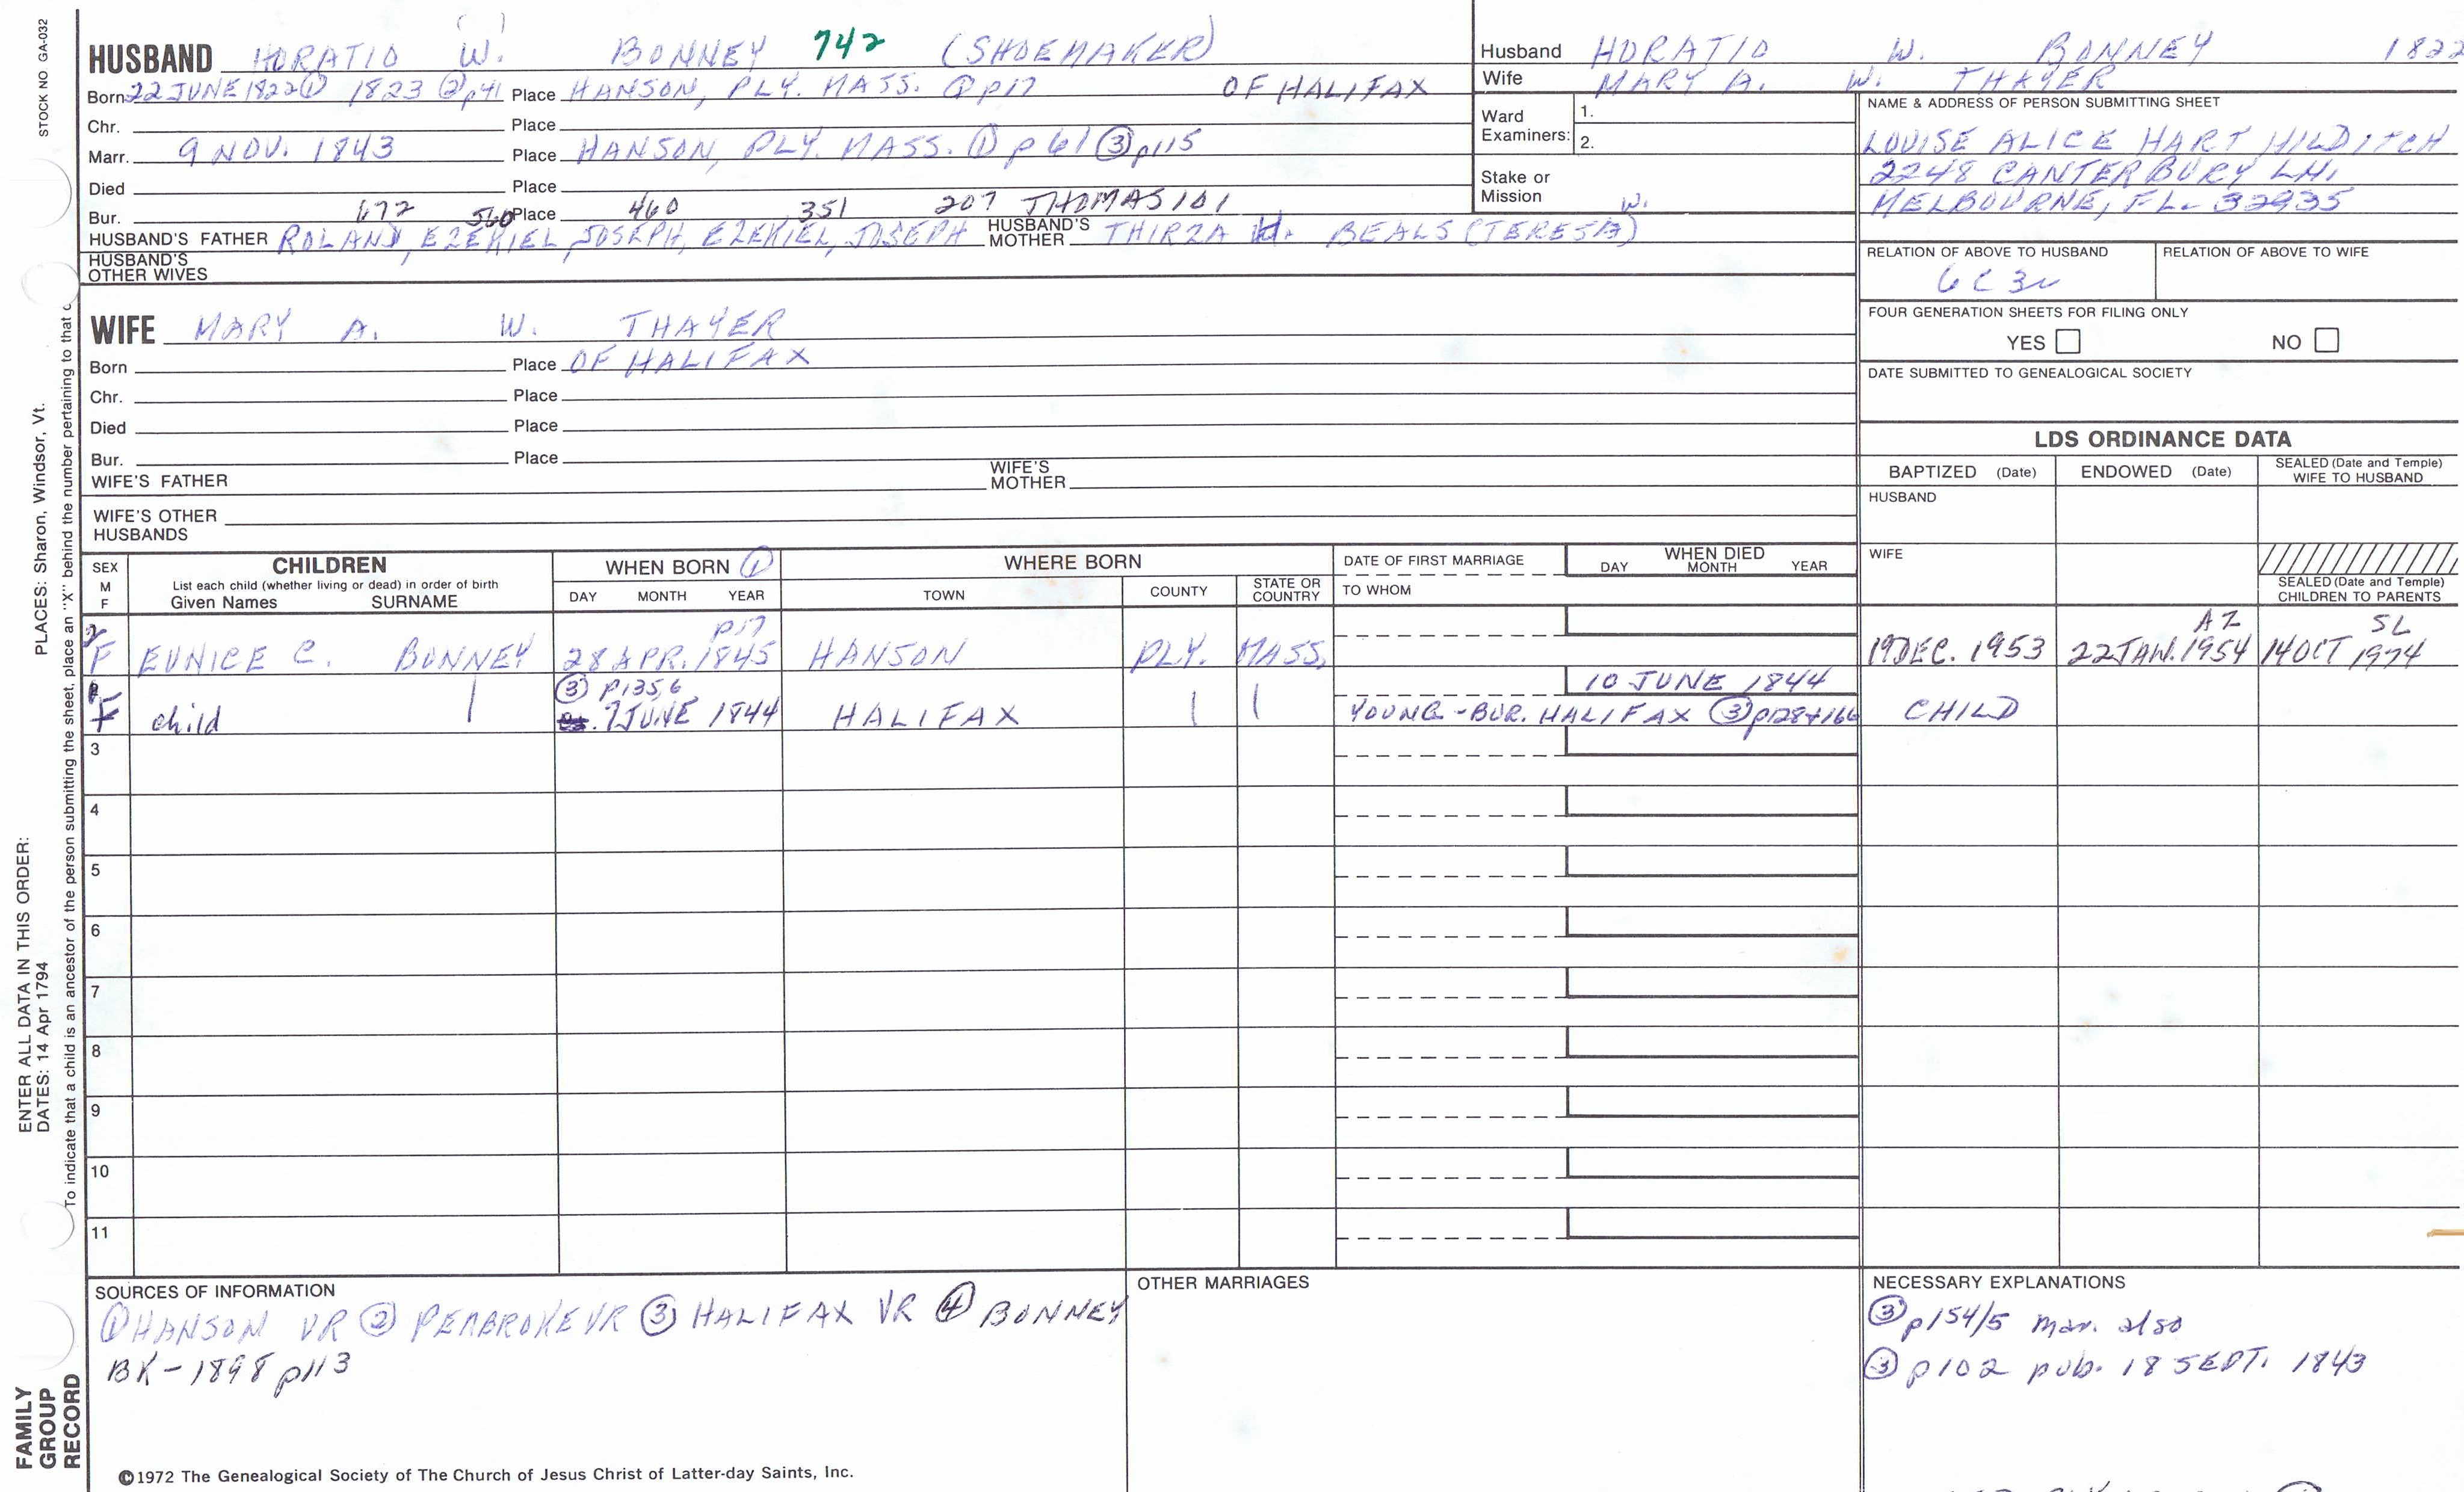 STOCK NO GA-032
HUSBAND HORATIO W. BONNEY 742 (SHOEMAKER)
Born 22 JUNE 1822 ① 1823 ② p41 Place HANSON, PLY. MASS. ① p17 OF HALIFAX
Chr. Place
Marr. 9 NOV. 1843 Place HANSON, PLY. MASS. ① p 61 ③ p115
Died Place
Bur. Place
672 560 460 351 207 THOMAS 101
HUSBAND'S FATHER ROLAND, EZEKIEL, JOSEPH, EZEKIEL, JOSEPH HUSBAND'S MOTHER THIRZA W. BEALS (TERESA)
HUSBAND'S OTHER WIVES
WIFE MARY A. W. THAYER
Born Place OF HALIFAX
Chr. Place
Died Place
Bur. Place
WIFE'S FATHER WIFE'S MOTHER
WIFE'S OTHER HUSBANDS
Husband HORATIO W. BONNEY 1822
Wife MARY A. W. THAYER
Ward Examiners: 1.
2.
Stake or Mission
NAME & ADDRESS OF PERSON SUBMITTING SHEET
LOUISE ALICE HART HILDITCH
2248 CANTERBURY LN.
MELBOURNE, FL. 32935
RELATION OF ABOVE TO HUSBAND RELATION OF ABOVE TO WIFE
6C3
FOUR GENERATION SHEETS FOR FILING ONLY
YES NO
DATE SUBMITTED TO GENEALOGICAL SOCIETY
LDS ORDINANCE DATA
BAPTIZED (Date) ENDOWED (Date) SEALED (Date and Temple) WIFE TO HUSBAND
HUSBAND
WIFE
SEALED (Date and Temple) CHILDREN TO PARENTS
SEX M F
CHILDREN
List each child (whether living or dead) in order of birth
Given Names SURNAME
WHEN BORN ①
DAY MONTH YEAR
WHERE BORN
TOWN COUNTY STATE OR COUNTRY
DATE OF FIRST MARRIAGE
TO WHOM
WHEN DIED
DAY MONTH YEAR
p17 AZ SL
2 F EUNICE C. BONNEY 28 APR. 1845 HANSON PLY. MASS. 19 DEC. 1953 22 JAN. 1954 14 OCT 1974
③ p135,6 10 JUNE 1844
F child 7 JUNE 1844 HALIFAX YOUNG - BUR. HALIFAX ③ p128+166 CHILD
3
4
5
6
7
8
9
10
11
SOURCES OF INFORMATION
① HANSON VR ② PEMBROKE VR ③ HALIFAX VR ④ BONNEY
BK - 1898 p113
OTHER MARRIAGES
NECESSARY EXPLANATIONS
③ p154/5 mar. also
③ p102 pub. 18 SEPT. 1843
©1972 The Genealogical Society of The Church of Jesus Christ of Latter-day Saints, Inc.
FAMILY GROUP RECORD
ENTER ALL DATA IN THIS ORDER:
DATES: 14 Apr 1794
PLACES: Sharon, Windsor, Vt.
To indicate that a child is an ancestor of the person submitting the sheet, place an "X" behind the number pertaining to that